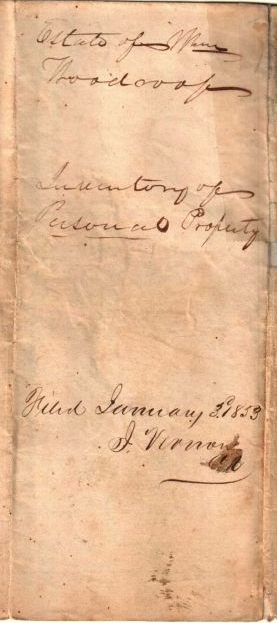 Estate of Wm
Woodcoop
Inventory of
Personal Property
Filed January 3d 1853
J. Vernon